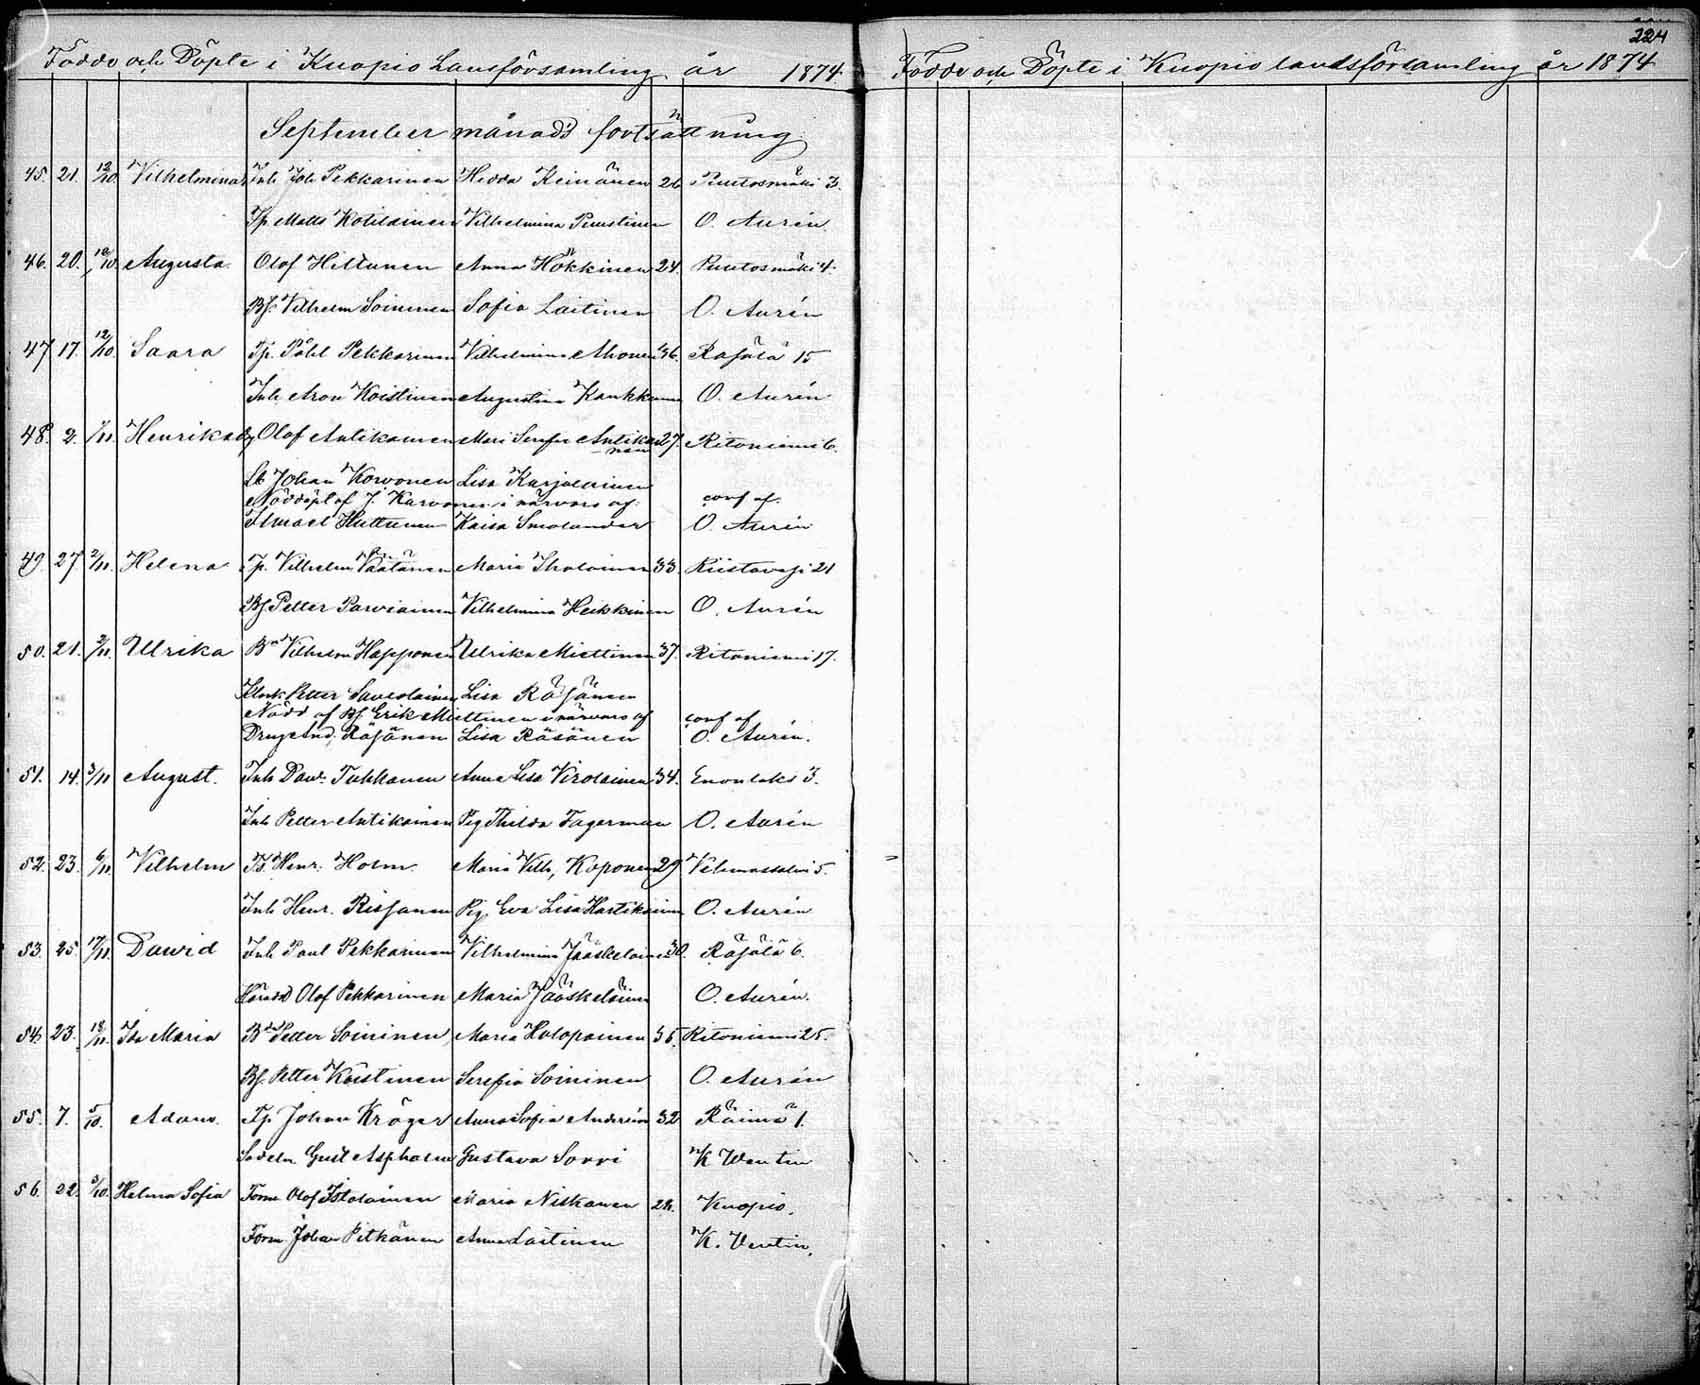 Födde och Döpte i Kuopio Lansförsamling år 1874
September månads fortsättning
45. 21. 12/10 Vilhelmina Inh Joh Pekkarinen Hedda Keinänen 26 Puutosmäki 3.
Tp Matts Kotilainen Vilhelmina Puustinen O. Aurén
46. 20. 10/10. Augusta Olof Hiltunen Anna Hökkinen 24. Puutosmäki 4.
Bf. Vilhelm Soininen Sofia Laitinen O. Aurén
47 17. 12/10. Saara Tp. Påhl Pekkarinen Vilhelmina Ahonen 36. Rajalä 15
Inh Aron Koistinen Augustina Kaukkunen O. Aurén
48. 2. 1/11. Henrika Olof Antikainen Mari Serefia Antikai 27. Ritoniemi 6.
nen
Johan Korvonen Lisa Karjalainen
Nöddöpt af J. Karvonen i närvaro af conf af.
Ismael Huttunen Kaisa Smolander O. Aurén
49. 27 2/11. Helena Tp. Vilhelm Väätänen Maria Iholainen 33. Riistavesi 21
Bf Petter Parviainen Vilhelmina Heikkinen O. Aurén
50. 21. 2/11. Ulrika Bn Vilhelm Happonen Ulrika Miettinen 37. Ritoniemi 17.
Petter Savolainen Lisa Räsänen
Nödd af Bf Erik Miettinen i närvaro af conf af
Dreng And. Räsänen Lisa Räsänen O. Aurén.
51. 14. 3/11 August. Inh Dav. Tuhkanen Anna Lisa Virolainen 34. Enonlaks 3.
Inh Petter Antikainen Pig Thilda Fagerman O. Aurén
52. 23. 6/11. Vilhelm Henr. Holm Maria Vilh, Koponen 29 Vehmassalmi 5.
Inh Henr. Rissanen Pig. Eva Lisa Hartikainen O. Aurén
53. 25. 17/11. David Inh Paul Pekkarinen Vilhelmina Jääskelainen 30. Räsälä 6.
Olof Pekkarinen Maria Jääskeläinen O. Aurén.
54 23. 18/11. Ida Maria Petter Soininen Maria Holopainen 35. Ritoniemi 25.
Bf. Petter Koistinen Serefia Soininen O. Aurén
55. 7. 5/10. Adam Tp Johan Kröger Anna Sofia Andersin 32 Räimä 1.
Gust Aspholm Gustava Sorri K Wentin
56. 22. 5/10. Helena Sofia Olof Maria Niskanen 28. Kuopio.
Johan Pitkänen Anna Laitinen K. Ventin.
224
Födde och Döpte i Kuopio landsförsamling år 1874